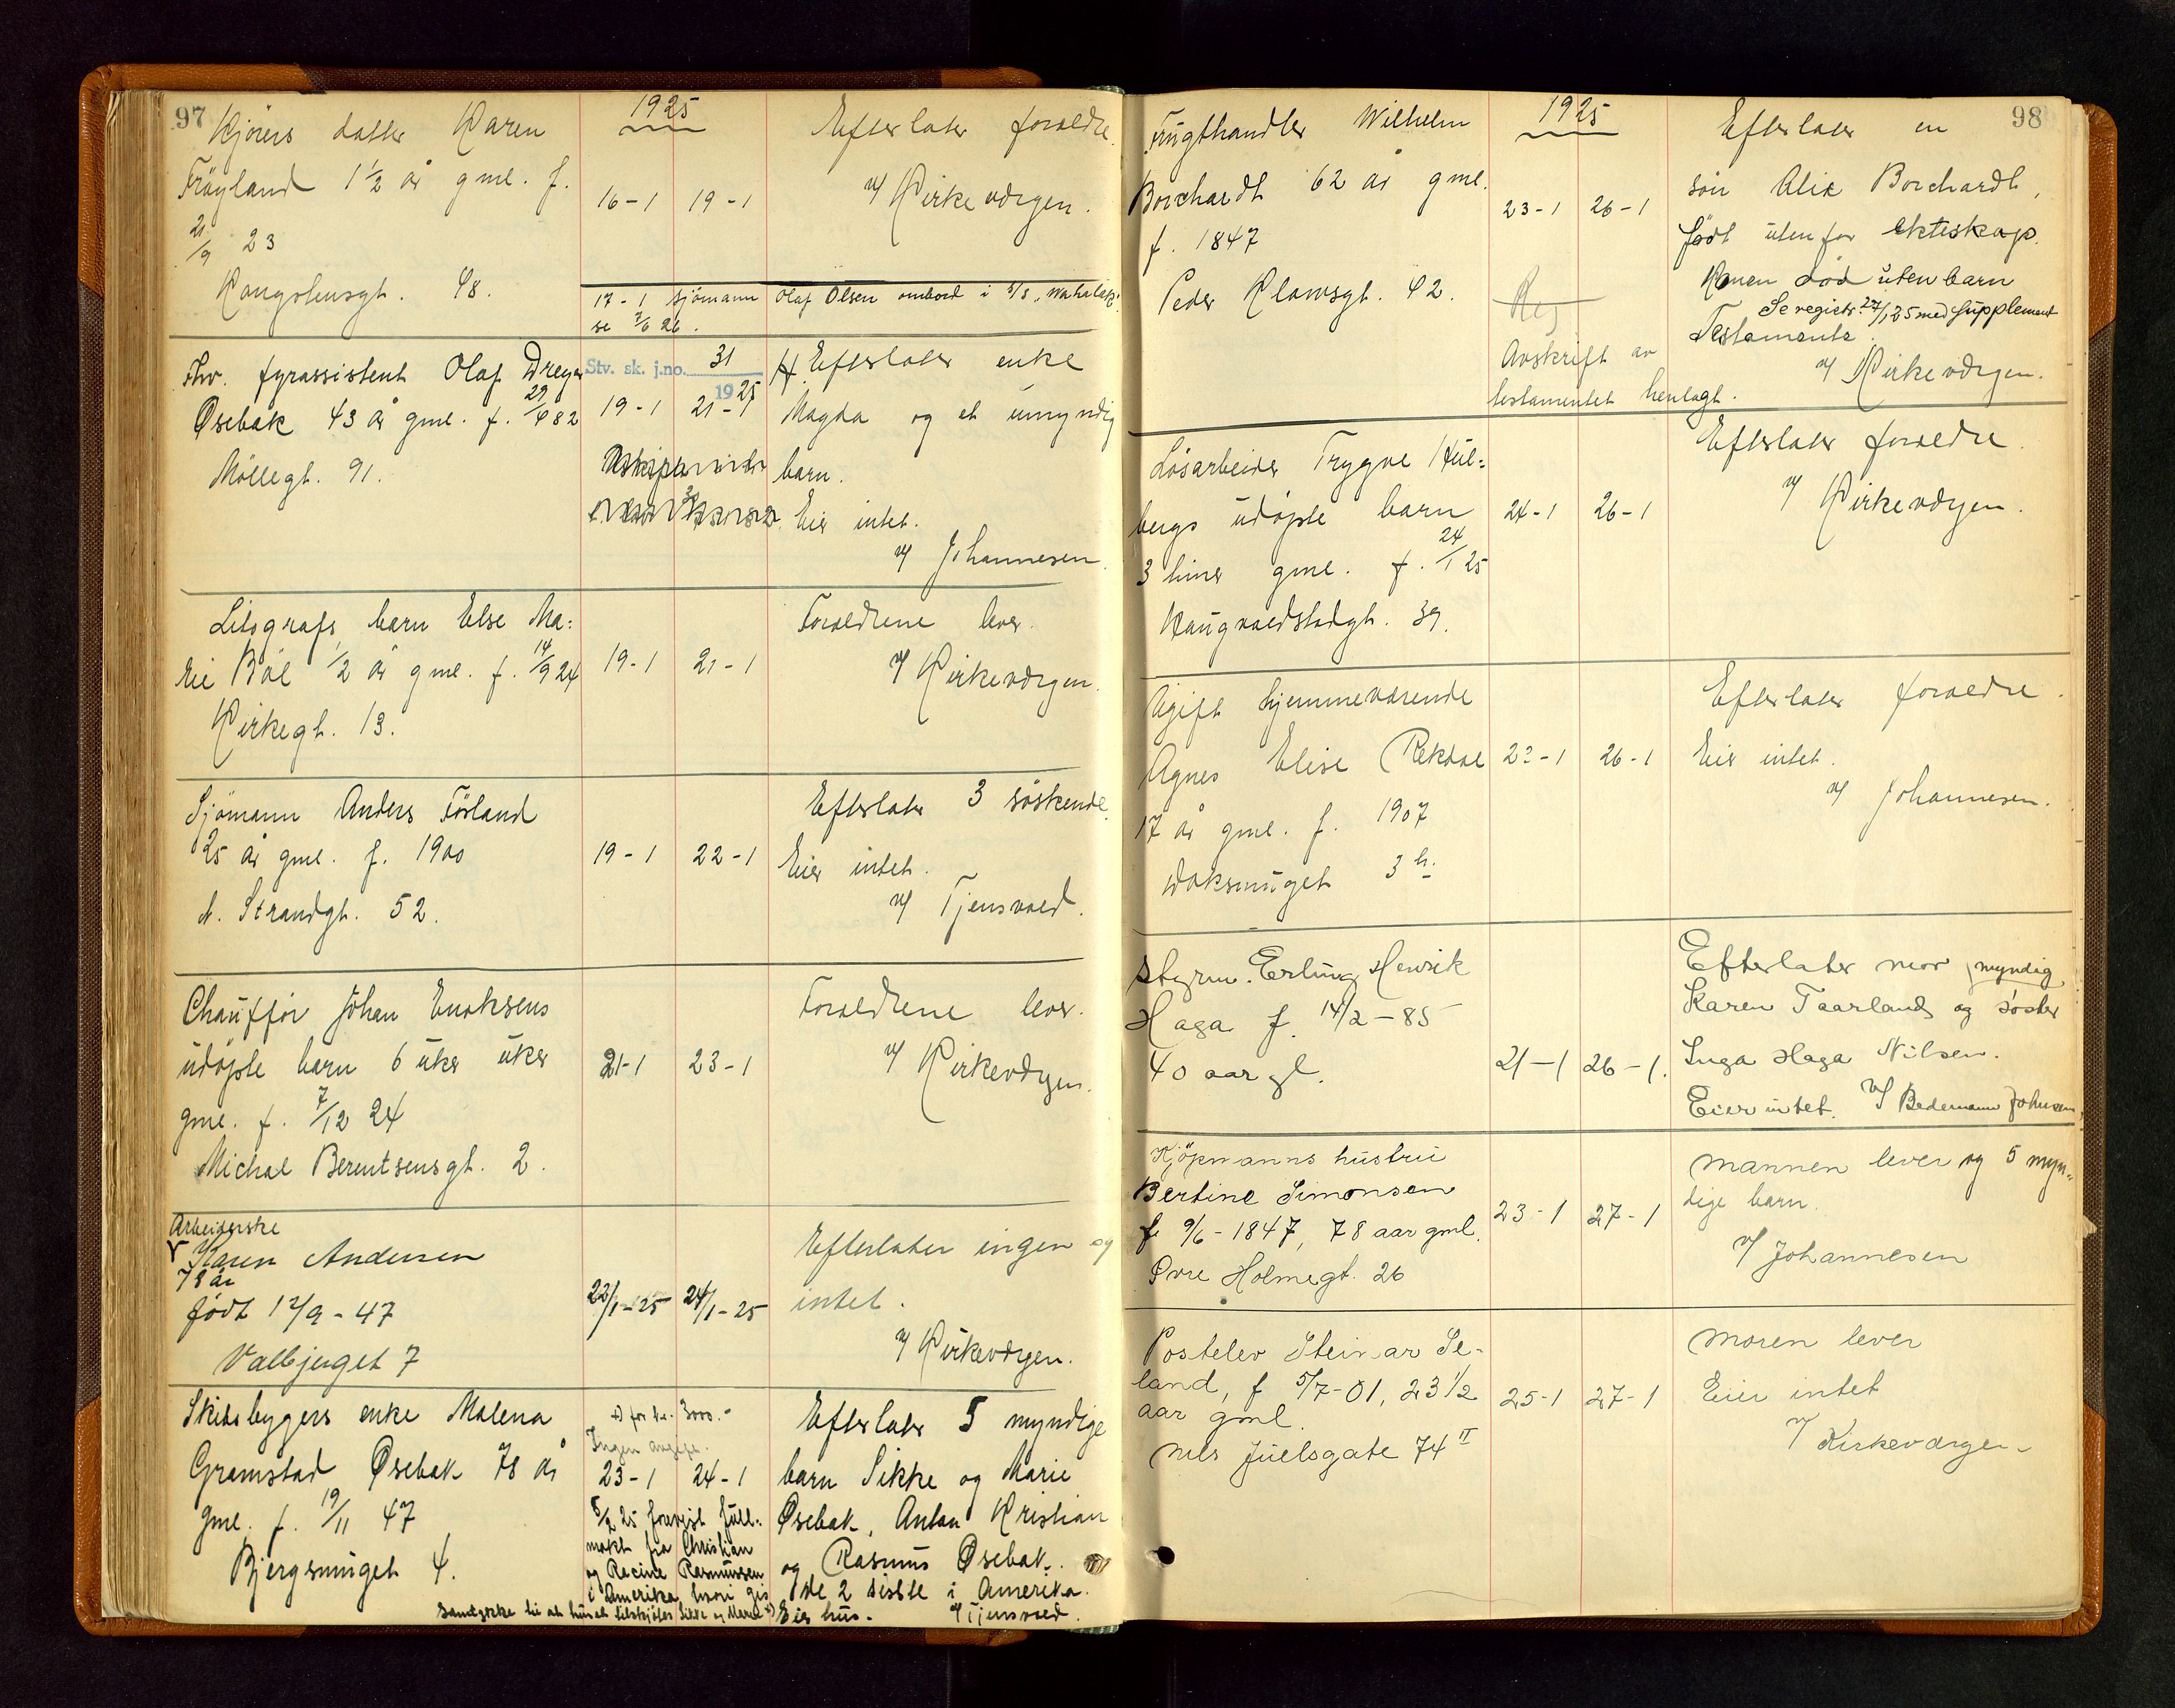 97
1925
Kjörers datter Karen
Fröyland 1 1/2 år gml. f.
21/9 23
Kongsteinsgt. 48.
16-1 19-1
Efterlater foreldre.
v/ Kirkevergen.
17-1 sjömann Olaf Olsen ombord i s/s
se 7/6 26.
Fhv. fyrassistent Olaf Dreyer
Øsebak 43 år gml. f. 29/4 82
Möllegt. 91.
Stv. sk. j.no. 31
1925
19-1 21-1
Efterlater enke
Magda og et umyndig
barn.
Eier intet.
v/ Johannesen.
Litografs barn Else Ma=
rie Böe 1/2 år gml. f. 14/9 24
Kirkegt. 13.
19-1 21-1
Foreldrene lever.
v/ Kirkevergen.
Sjömann Anders Förland
25 år gml. f. 1900
N. Strandgt. 52.
19-1 22-1
Efterlater 3 söskende.
Eier intet.
v/ Tjensvold.
Chaufför Johan Enoksens
udöpte barn 6 uker uker
gml. f. 7/12 24
Michal Berentsensgt. 2.
21-1 23-1
Foreldrene lever.
v/ Kirkevergen.
Arbeiderske
Karen Andersen
78 år
født 12/9-47
Valbjerget 7
22/1-25 24/1-25
Efterlater ingen og
intet.
v/ Kirkevergen.
Skibsbyggers enke Malena
Gramstad Øsebak 78 år
gml. f. 19/11 47
Bjergsmuget 4.
x) for kr. 3000.-
Ingen avgift.
23-1 24-1
5/2 25 forevist full=
makt fra Christian
og Racine Rasmussen
i Amerika hvori gis
samtykke til at huset tilskjötes Sikke og Marie x)
Efterlater 5 myndige
barn Sikke og Marie
Øsebak, Anton Kristian
og Rasmus Øsebak.
de 2 sidste i Amerika.
Eier hus. v/ Tjensvold.
98
1925
Frugthandler Wilhelm
Borchardt 62 år gml.
f. 1847
Peder Klowsgt. 42.
23-1 26-1
Reg
Avskrift av
testamentet henlagt.
Efterlater en
sön Alix Borchardt,
födt utenfor ekteskap.
Konen död uten barn
Se registr. 27/1 25 med supplement
Testamente.
v/ Kirkevergen.
Lösarbeider Trygve Hül=
bergs udöpte barn
3 timer gml. f. 24/1 25
Haugvaldstadgt. 39.
24-1 26-1
Efterlater foreldre.
v/ Kirkevergen.
Ugift hjemmeværende
Agnes Elise Rekdal
17 år gml. f. 1907
Vaksmuget 3 b.
23-1 26-1
Efterlater foreldre.
Eier intet.
v/ Johannesen.
Styrm. Erling Henrik
Haga f. 14/2-85
40 aar gl.
21-1 26-1.
Efterlater mor myndig
Karen Taarland og söster
Inga Haga Nilsen.
Eier intet. v/ Bedemann Johnsen
Kjöpmanns hustru
Bertine Simonsen
f 9/6-1847, 78 aar gml.
Øvre Holmegt. 26
23-1 27-1
Mannen lever og 5 myn=
dige barn.
v/ Johannesen
Postelev Steinar Se-
land, f 5/7-01, 23 1/2
aar gml.
Nils Juelsgate 74 II
25-1 27-1
Moren lever
Eier intet
v/ Kirkevergen